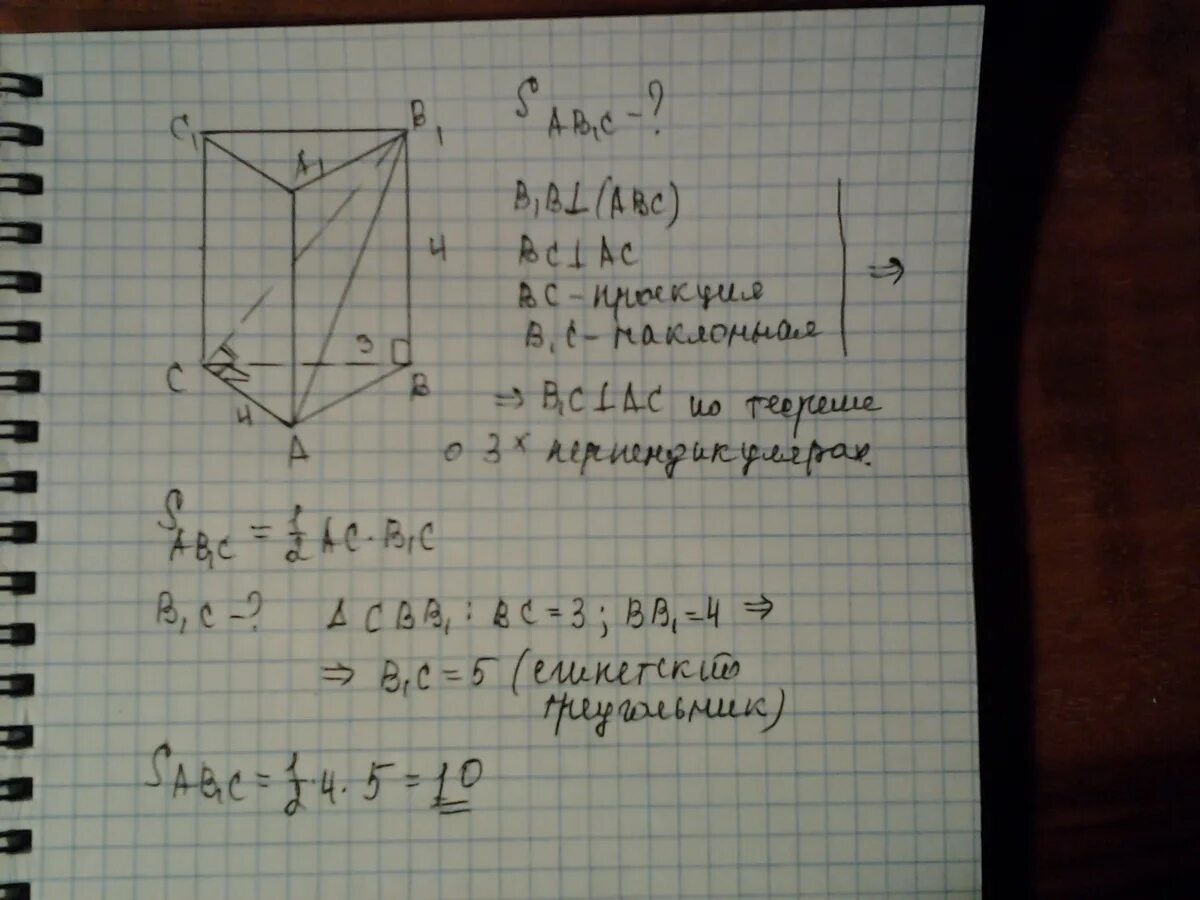 C₁
B₁
A₁
4
3
C
B
4
A
S AB₁C - ?
B₁B⊥(ABC)
BC⊥AC
BC - проекция
B₁C - наклонная
⇒
⇒ B₁C⊥AC по теореме
о 3ˣ перпендикулярах.
S AB₁C = 1/2 AC · B₁C
B₁C - ? Δ CBB₁ : BC = 3 ; BB₁ = 4 ⇒
⇒ B₁C = 5 (египетский
треугольник)
S AB₁C = 1/2 · 4 · 5 = 10